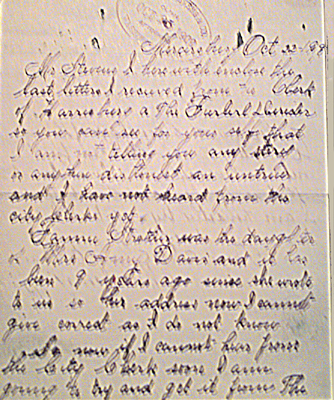 Mercersburg Oct 22-19
Mr Stevens I herewith enclose the
last letters I received from the Clerk
of Harrisburg
so you can see for your self that
I am not telling you any
or any thin dishonest an untrue
and I have not heard from the
city clerks yet
was the daughter
of Mrs Davis and it has
been 9 years ago since she wrote
to us so her address now I cannot
give correct as I do not know
So now if I cannot hear from
the City Clerk soon I am
going to try and get it from The